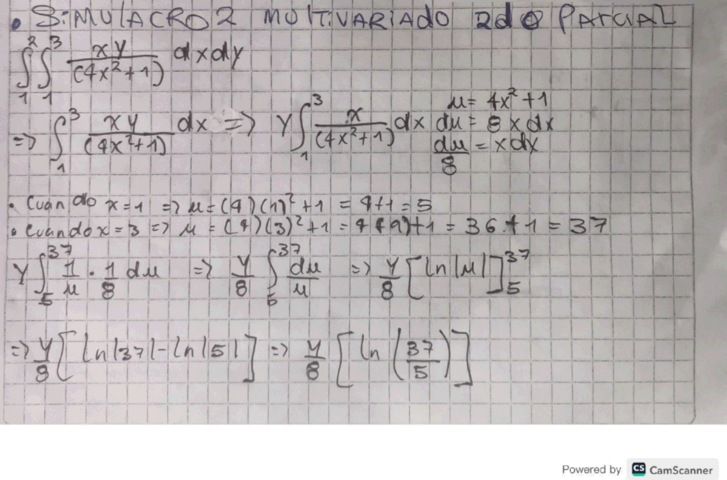 • SiMULACRO 2 MULTIVARIADO 2do PARCIAL
∫₁² ∫₁³ xy/(4x²+1) dxdy
=> ∫₁³ xy/(4x²+1) dx => y ∫₁³ x/(4x²+1) dx
u = 4x²+1
du = 8xdx
du/8 = xdx
• Cuando x=1 => u=(4)(1)²+1 = 4+1=5
• Cuando x=3 => u = (4)(3)²+1 = 4(9)+1 = 36+1 = 37
y ∫₅³⁷ 1/u · 1/8 du => y/8 ∫₅³⁷ du/u => y/8 [ln|u|]₅³⁷
=> y/8 [ln|37|-ln|5|] => y/8 [ln(37/5)]
Powered by CS CamScanner